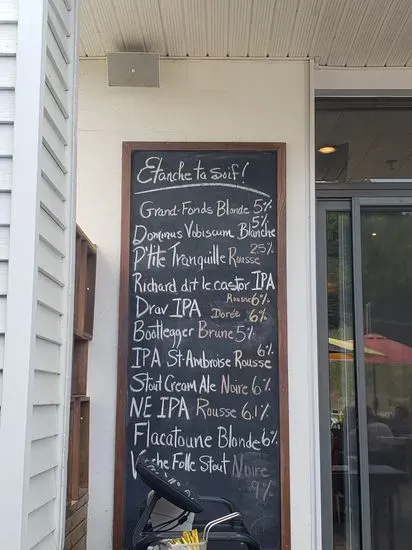 Étanche ta soif!
Grand-Fonds Blonde 5%
Dominus Vobiscum Blanche 5%
P'tite Tranquille Rousse 2.5%
Richard dit le castor IPA Rousse 6%
Drav IPA Dorée 6%
Bootlegger Brune 5%
IPA St-Ambroise Rousse 6%
Stout Cream Ale Noire 6%
NE IPA Rousse 6.1%
Flacatoune Blonde 6%
Folle Stout Noire 9%